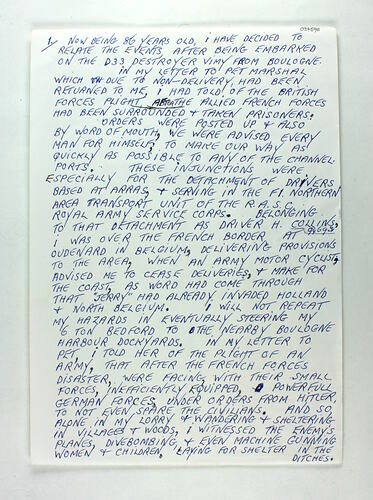 034590
1/ NOW BEING 86 YEARS OLD, I HAVE DECIDED TO
RELATE THE EVENTS, AFTER BEING EMBARKED
ON THE D33 DESTROYER VIMY FROM BOULOGNE.
IN MY LETTER TO PET MARSHAL
WHICH DUE TO NON-DELIVERY, HAD BEEN
RETURNED TO ME, I HAD TOLD, OF THE BRITISH
FORCES PLIGHT, THE ALLIED FRENCH FORCES
HAD BEEN SURROUNDED + TAKEN PRISONERS.
ORDERS WERE POSTED UP + ALSO
BY WORD OF MOUTH, WE WERE ADVISED EVERY
MAN FOR HIMSELF, TO MAKE OUR WAY AS
QUICKLY AS POSSIBLE TO ANY OF THE CHANNEL
PORTS. THESE INJUNCTIONS WERE
ESPECIALLY FOR THE DETACHMENT OF DRIVERS
BASED AT ARRAS, + SERVING IN THE F1. NORTHERN
AREA TRANSPORT UNIT OF THE R.A.S.C.
ROYAL ARMY SERVICE CORPS. BELONGING
TO THAT DETACHMENT AS DRIVER H. COLLINS,
I WAS OVER THE FRENCH BORDER AT
OUDENARD IN BELGIUM, DELIVERING PROVISIONS
TO THE AREA, WHEN AN ARMY MOTOR CYCLIST,
ADVISED ME TO CEASE DELIVERIES, + MAKE FOR
THE COAST, AS WORD HAD COME THROUGH
THAT "JERRY" HAD ALREADY INVADED HOLLAND
+ NORTH BELGIUM. I WILL NOT REPEAT
MY HAZARDS IN EVENTUALLY STEERING MY
6 TON BEDFORD TO THE NEARBY BOULOGNE
HARBOUR DOCKYARDS. IN MY LETTER TO
PET, I TOLD HER OF THE PLIGHT OF AN
ARMY, THAT AFTER THE FRENCH FORCES
DISASTER, WERE FACING, WITH THEIR SMALL
FORCES, INEFFICIENTLY EQUIPPED, POWERFULL
GERMAN FORCES, UNDER ORDERS FROM HITLER
TO NOT EVEN SPARE THE CIVILIANS. AND SO,
ALONE IN MY LORRY + WANDERING + SHELTERING
IN VILLAGES + WOODS, I WITNESSED THE ENEMY'S
PLANES, DIVEBOMBING, + EVEN MACHINE GUNNING
WOMEN + CHILDREN, LAYING FOR SHELTER IN THE
DITCHES.